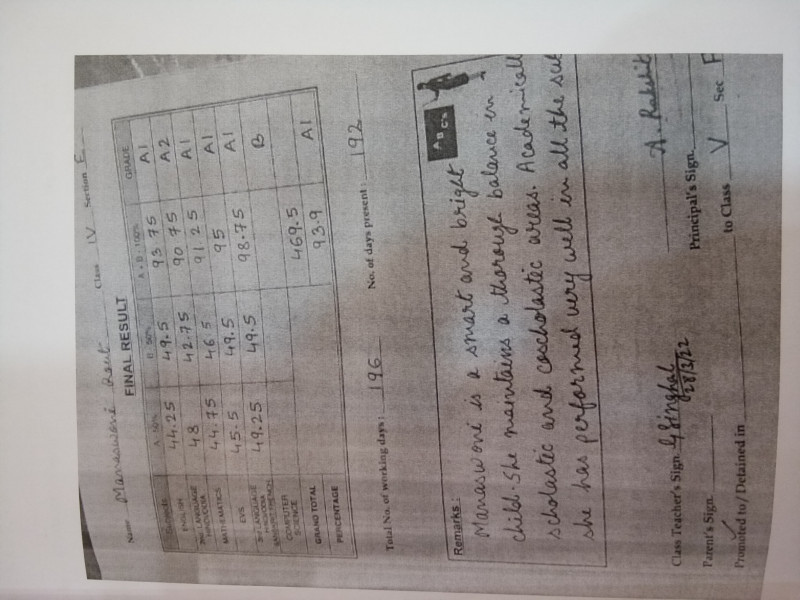 Name Manaswoni Rout Class IV Section E
FINAL RESULT
Subjects A - 50% B - 50% A + B - 100% GRADE
ENGLISH 44.25 49.5 93 75 A1
2ND LANGUAGE HINDI/ODIA 48 42.75 90 75 A2
MATHEMATICS 44.75 46 5 91 25 A1
EVS 45.5 49.5 95 A1
3RD LANGUAGE 49.25 49.5 98.75 A1
COMPUTER SCIENCE B
GRAND TOTAL 469.5
PERCENTAGE 93.9 A1
Total No. of working days : 196 No. of days present : 192
Remarks :
A B C's
Manaswoni is a smart and bright
child. She maintains a thorough balance in
scholastic and coscholastic areas. Academicall
she has performed very well in all the sub
Class Teacher's Sign. G Singhal
28/3/22
A. Rakshit
Parent's Sign. Principal's Sign.
Promoted to / Detained in to Class V Sec F